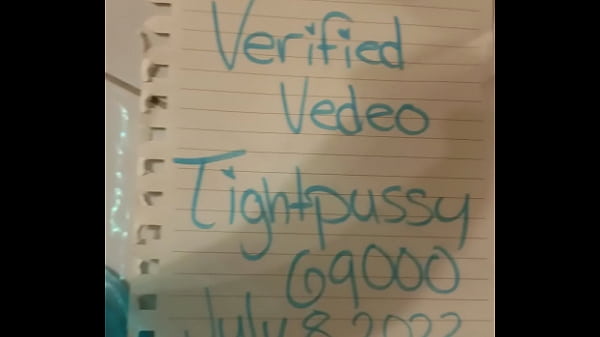 Verified
Vedeo
Tightpussy
69000
July 8 2022